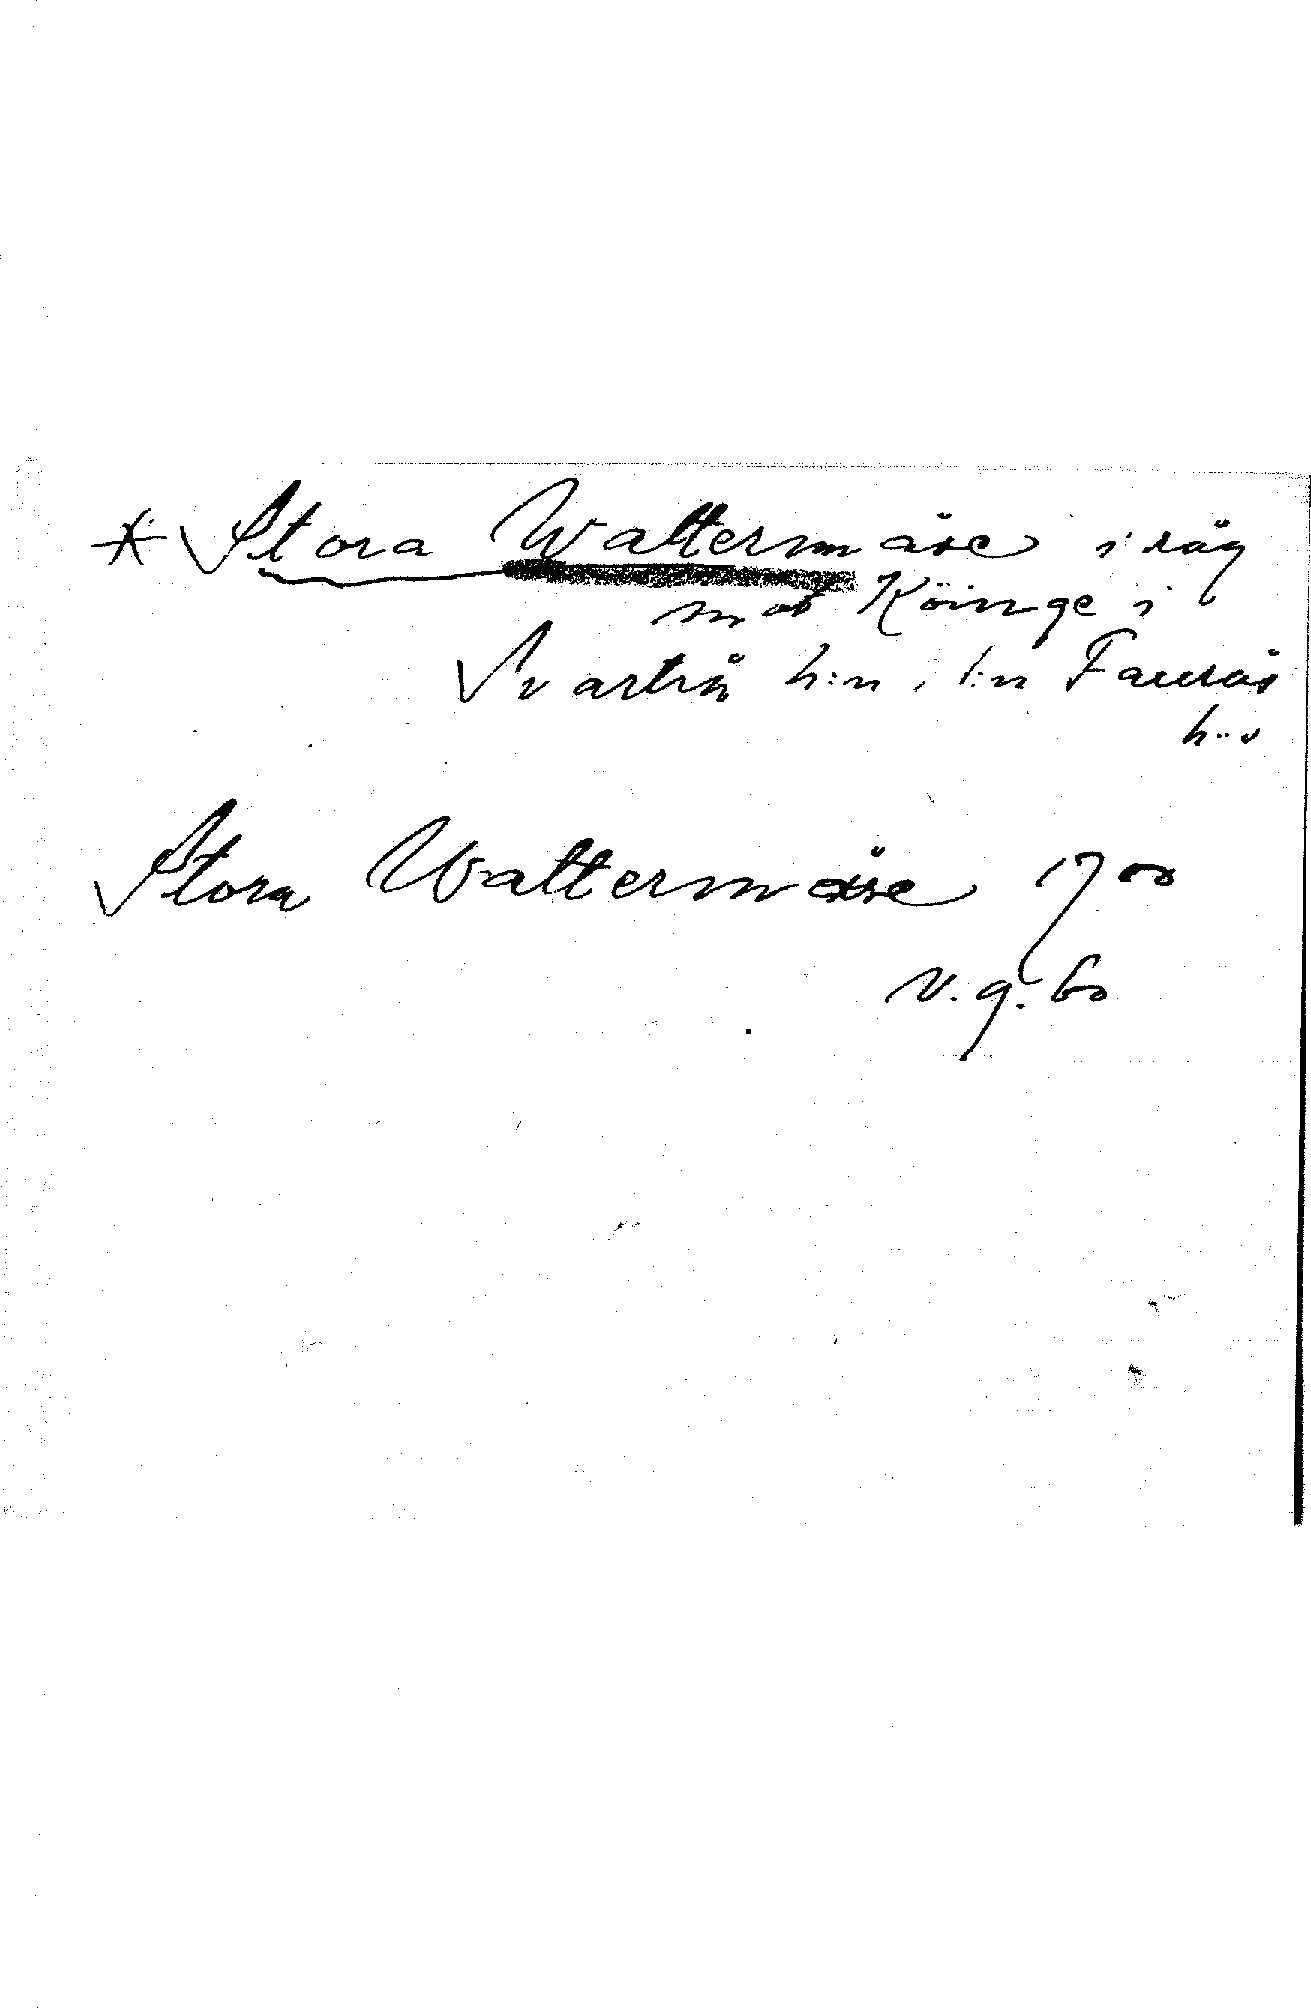 * Stora Wattermåse i råg
mot Köinge i
Svartrå h:n, l:n Faurås
h..d
Stora Wattermåse 1700
v.g. 60